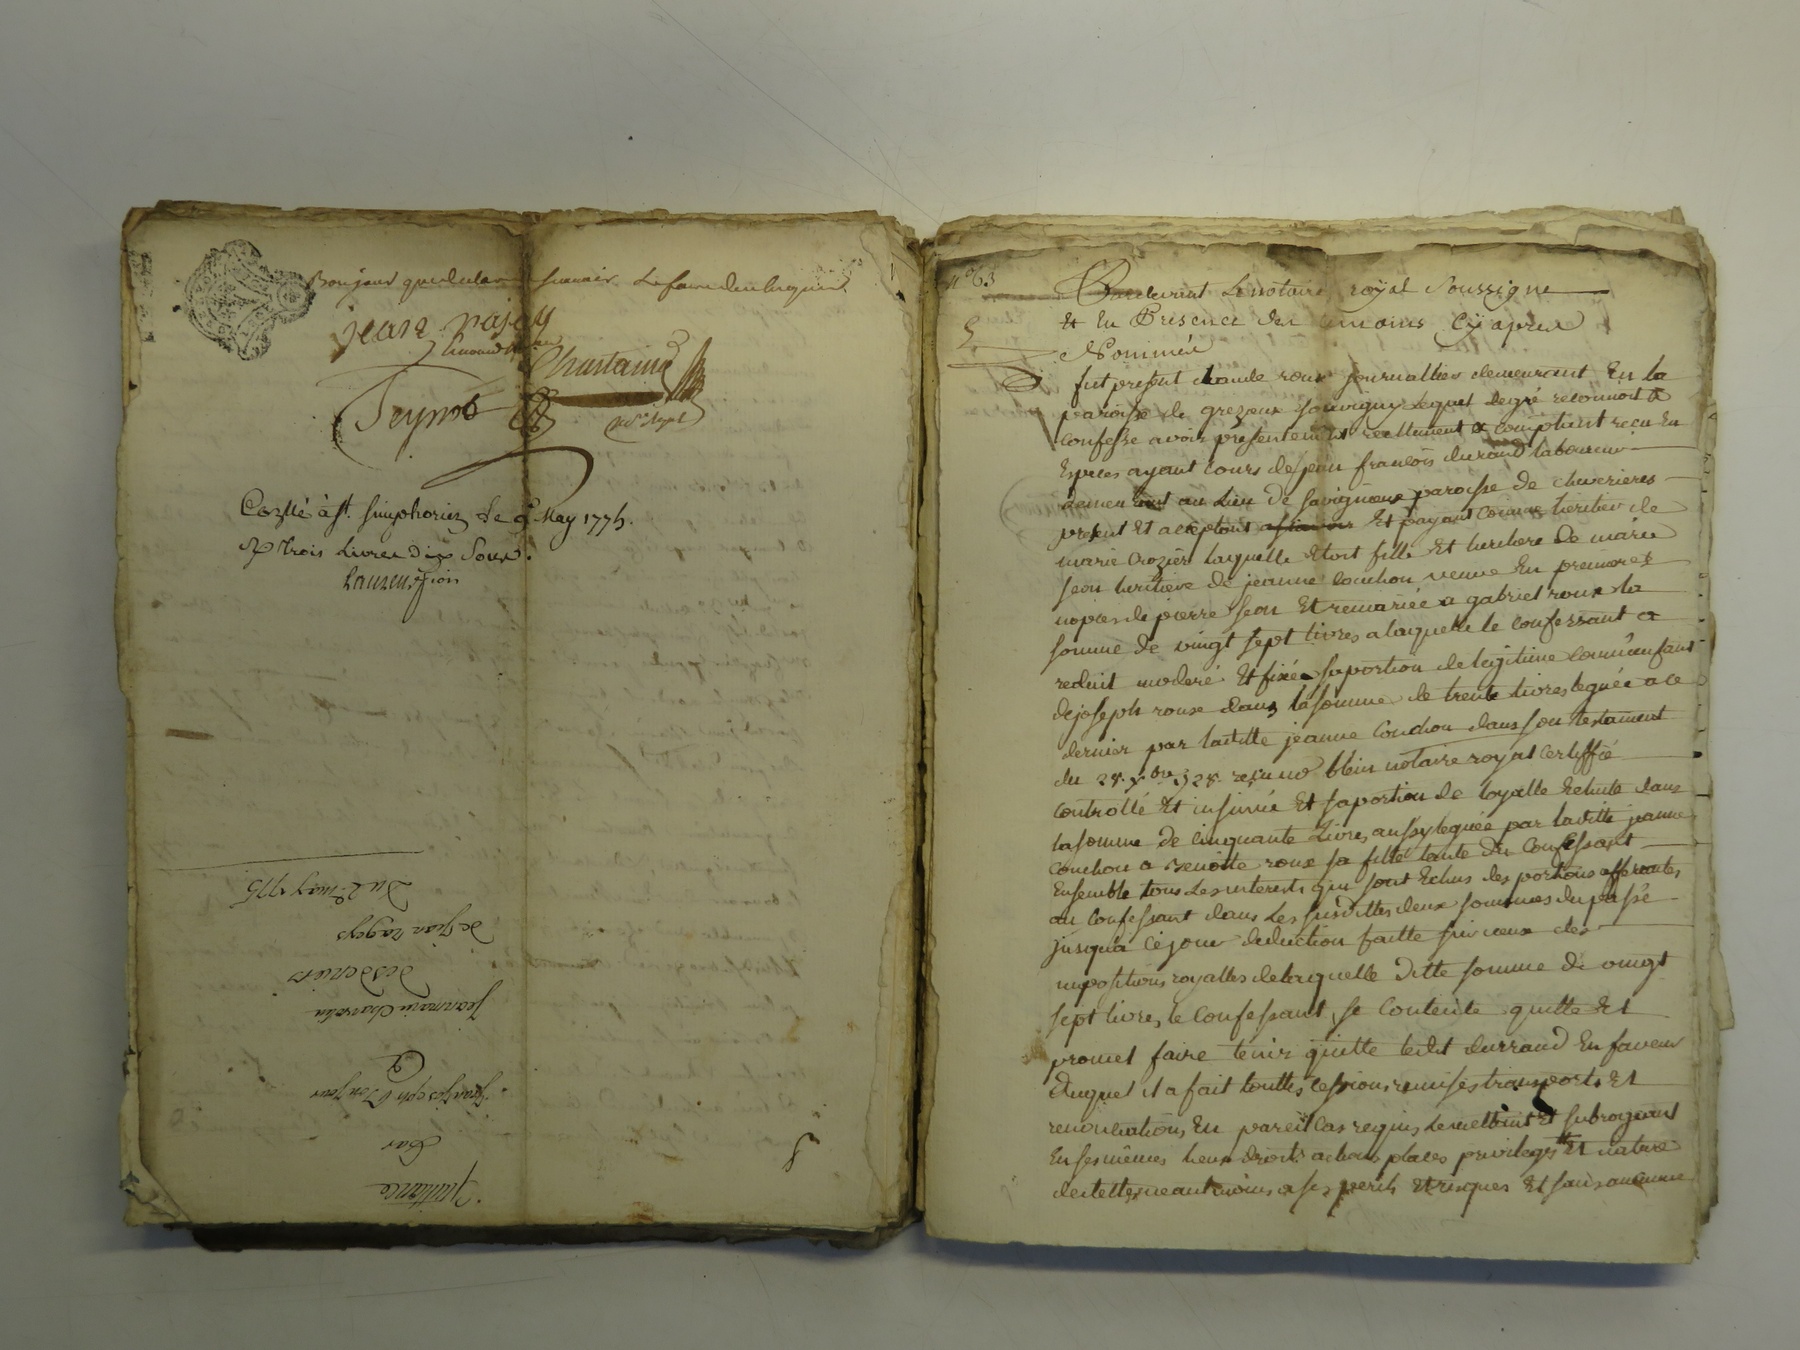 Bonjour
jean rajay
Chastaing
Teynot
Not. Royal
Contllé à St. Simphorien le 9 May 1775.
R. trois Livres dix Sous.
Quittance
par
jeanmarie
de jean rageys
Du 2e. may 1775
n° 63
Pardevant Le notaire royal Soussigné
Et En Présence des temoins Cy apres
Nommés
fut present claude roux journallier demeurant En la
paroisse de grezeux souvigny Lequel degré reconnoit &
confesse avoir presentement reellement & comptant recu En
Especes ayant cours de jean francois durand laboureur
demeurant au Lieu de Savigneux paroisse de chevrieres
present Et acceptant Et payant comme heritier de
marie Crozier laquelle Etoit fille Et heritiere De marie
seon heritiere de jeanne couchon veuve En premieres
nopces de pierre seon Et remariée a gabriel roux la
somme de vingt sept livres a laquelle le confessant a
reduit moderé Et fixée sa portion de legitime comme enfant
de joseph roux dans la somme de trente livres leguée a ce
dernier par laditte jeanne couchon dans son testament
du 28. xbre 1728. reçu me blein notaire royal certiffié
controllé Et insinué Et sa portion de loyalle Echute dans
la somme de cinquante Livres aussy leguée par laditte jeanne
couchon a benoitte roux sa fille tante du Confessant
Ensemble tous Les interests qui sont Echus des portions afferantes
au confessant dans Les susdittes deux sommes du passé
jusqua cejour deduction faitte sur iceux des
impositions royalles delaquelle Ditte somme de vingt
sept livres le confessant se contente quitte Et
promet faire tenir quitte ledit durand En faveur
duquel il a fait touttes cessions remises transports Et
renonciations En pareil Cas requis Le mettant Et subrogeant
En ses mêmes lieux droits actions places privileges Et nature
de dettes neantmoins a ses perils Et risques Et sans aucune